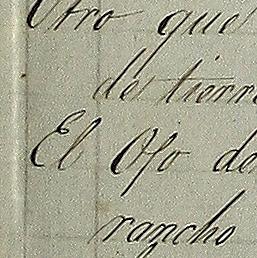 Otro que
de tierra
El Ojo de
rancho